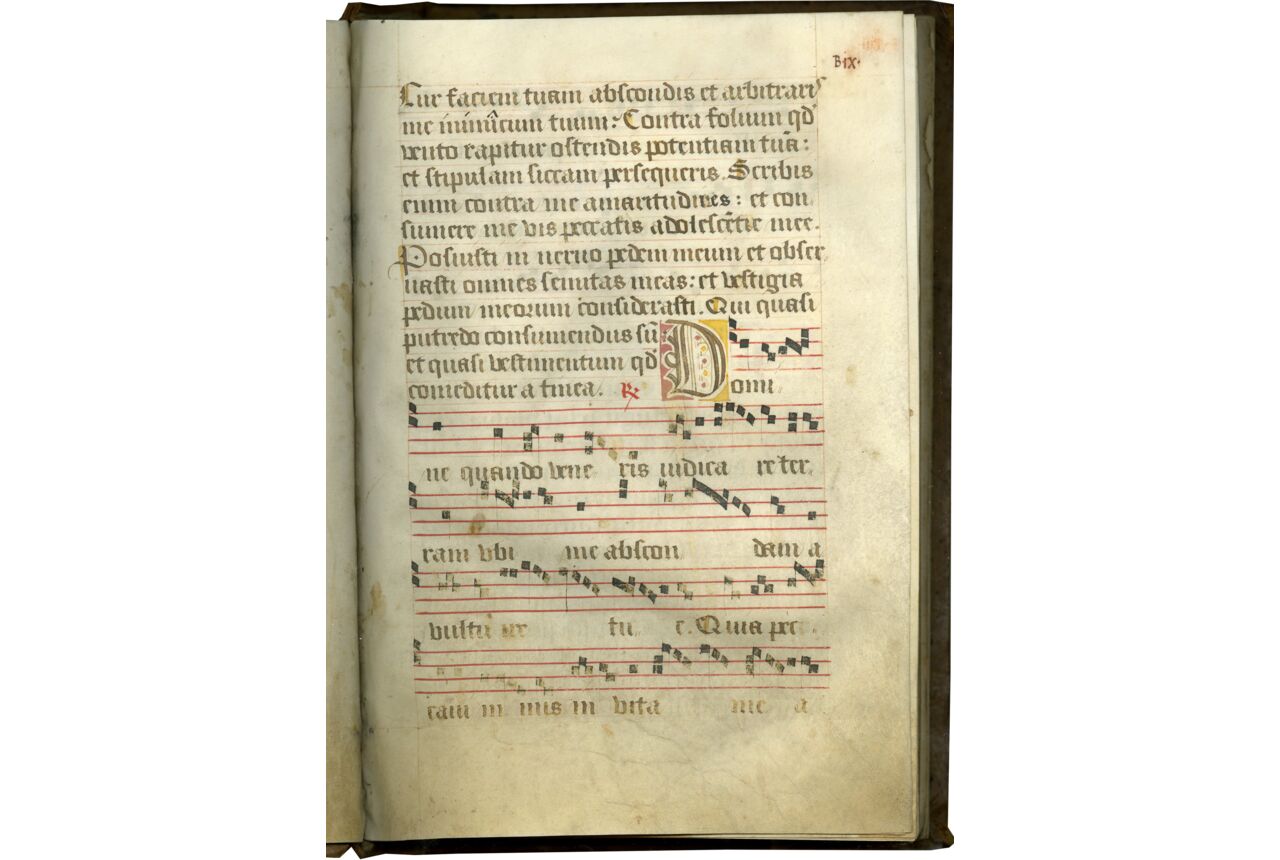 B·ix·
Cur faciem tuam abscondis et arbitraris
me inimicum tuum: Contra folium qd̄
vento rapitur ostendis potentiam tuā:
et stipulam siccam persequeris. Scribis
enim contra me amaritudines: et con
sumere me vis peccatis adolescētie mee.
Posuisti in neruo pedem meum et obser
uasti omnes semitas meas: et vestigia
pedum meorum considerasti. Qui quasi
putredo consumendus sū:
et quasi vestimentum qd̄
comeditur a tinea. ℟ Domi
ne quando vene ris iudica re ter
ram vbi me abscon dam a
vultu ire tu e. Quia pec
caui in mis in vita me a